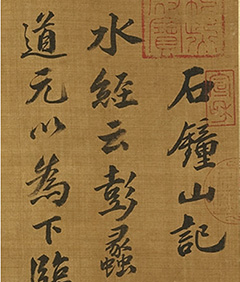 石鐘山記
水經云彭蠡
道元以為下臨